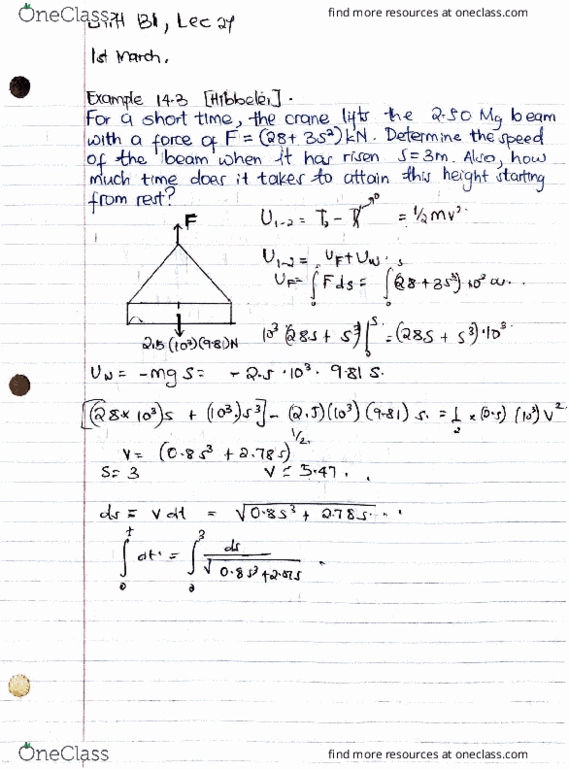 OneClass
find more resources at oneclass.com
B1, Lec 27
1st March.
Example 14.3 [Hibbeler].
For a short time, the crane lifts the 2.50 Mg beam
with a force of F = (28+ 3s²) kN. Determine the speed
of the beam when it has risen s=3m. Also, how
much time does it takes to attain this height starting
from rest?
F
U₁₋₂ = T₂ - T₁ 0 = ½mv²
U₁₋₂ = U_F + U_W.
U_F = ∫₀ˢ F ds = ∫₀ˢ (28 + 3s²) 10³ ds..
10³ (28s + s³)|₀ˢ = (28s + s³)·10³
2.5 (10³)(9.81)N
U_W = -mg s = - 2.5 · 10³ · 9.81 s.
[(28×10³)s + (10³)s³] - (2.5)(10³)(9.81) s. = ½ × (2.5)(10³) v²
v = (0.8s³ + 2.78s)^1/2.
s = 3 v = 5.47..
ds = v dt = √0.8s³ + 2.78s...
∫₀ᵗ dt = ∫₀³ ds / √0.8s³+2.78s
OneClass
find more resources at oneclass.com